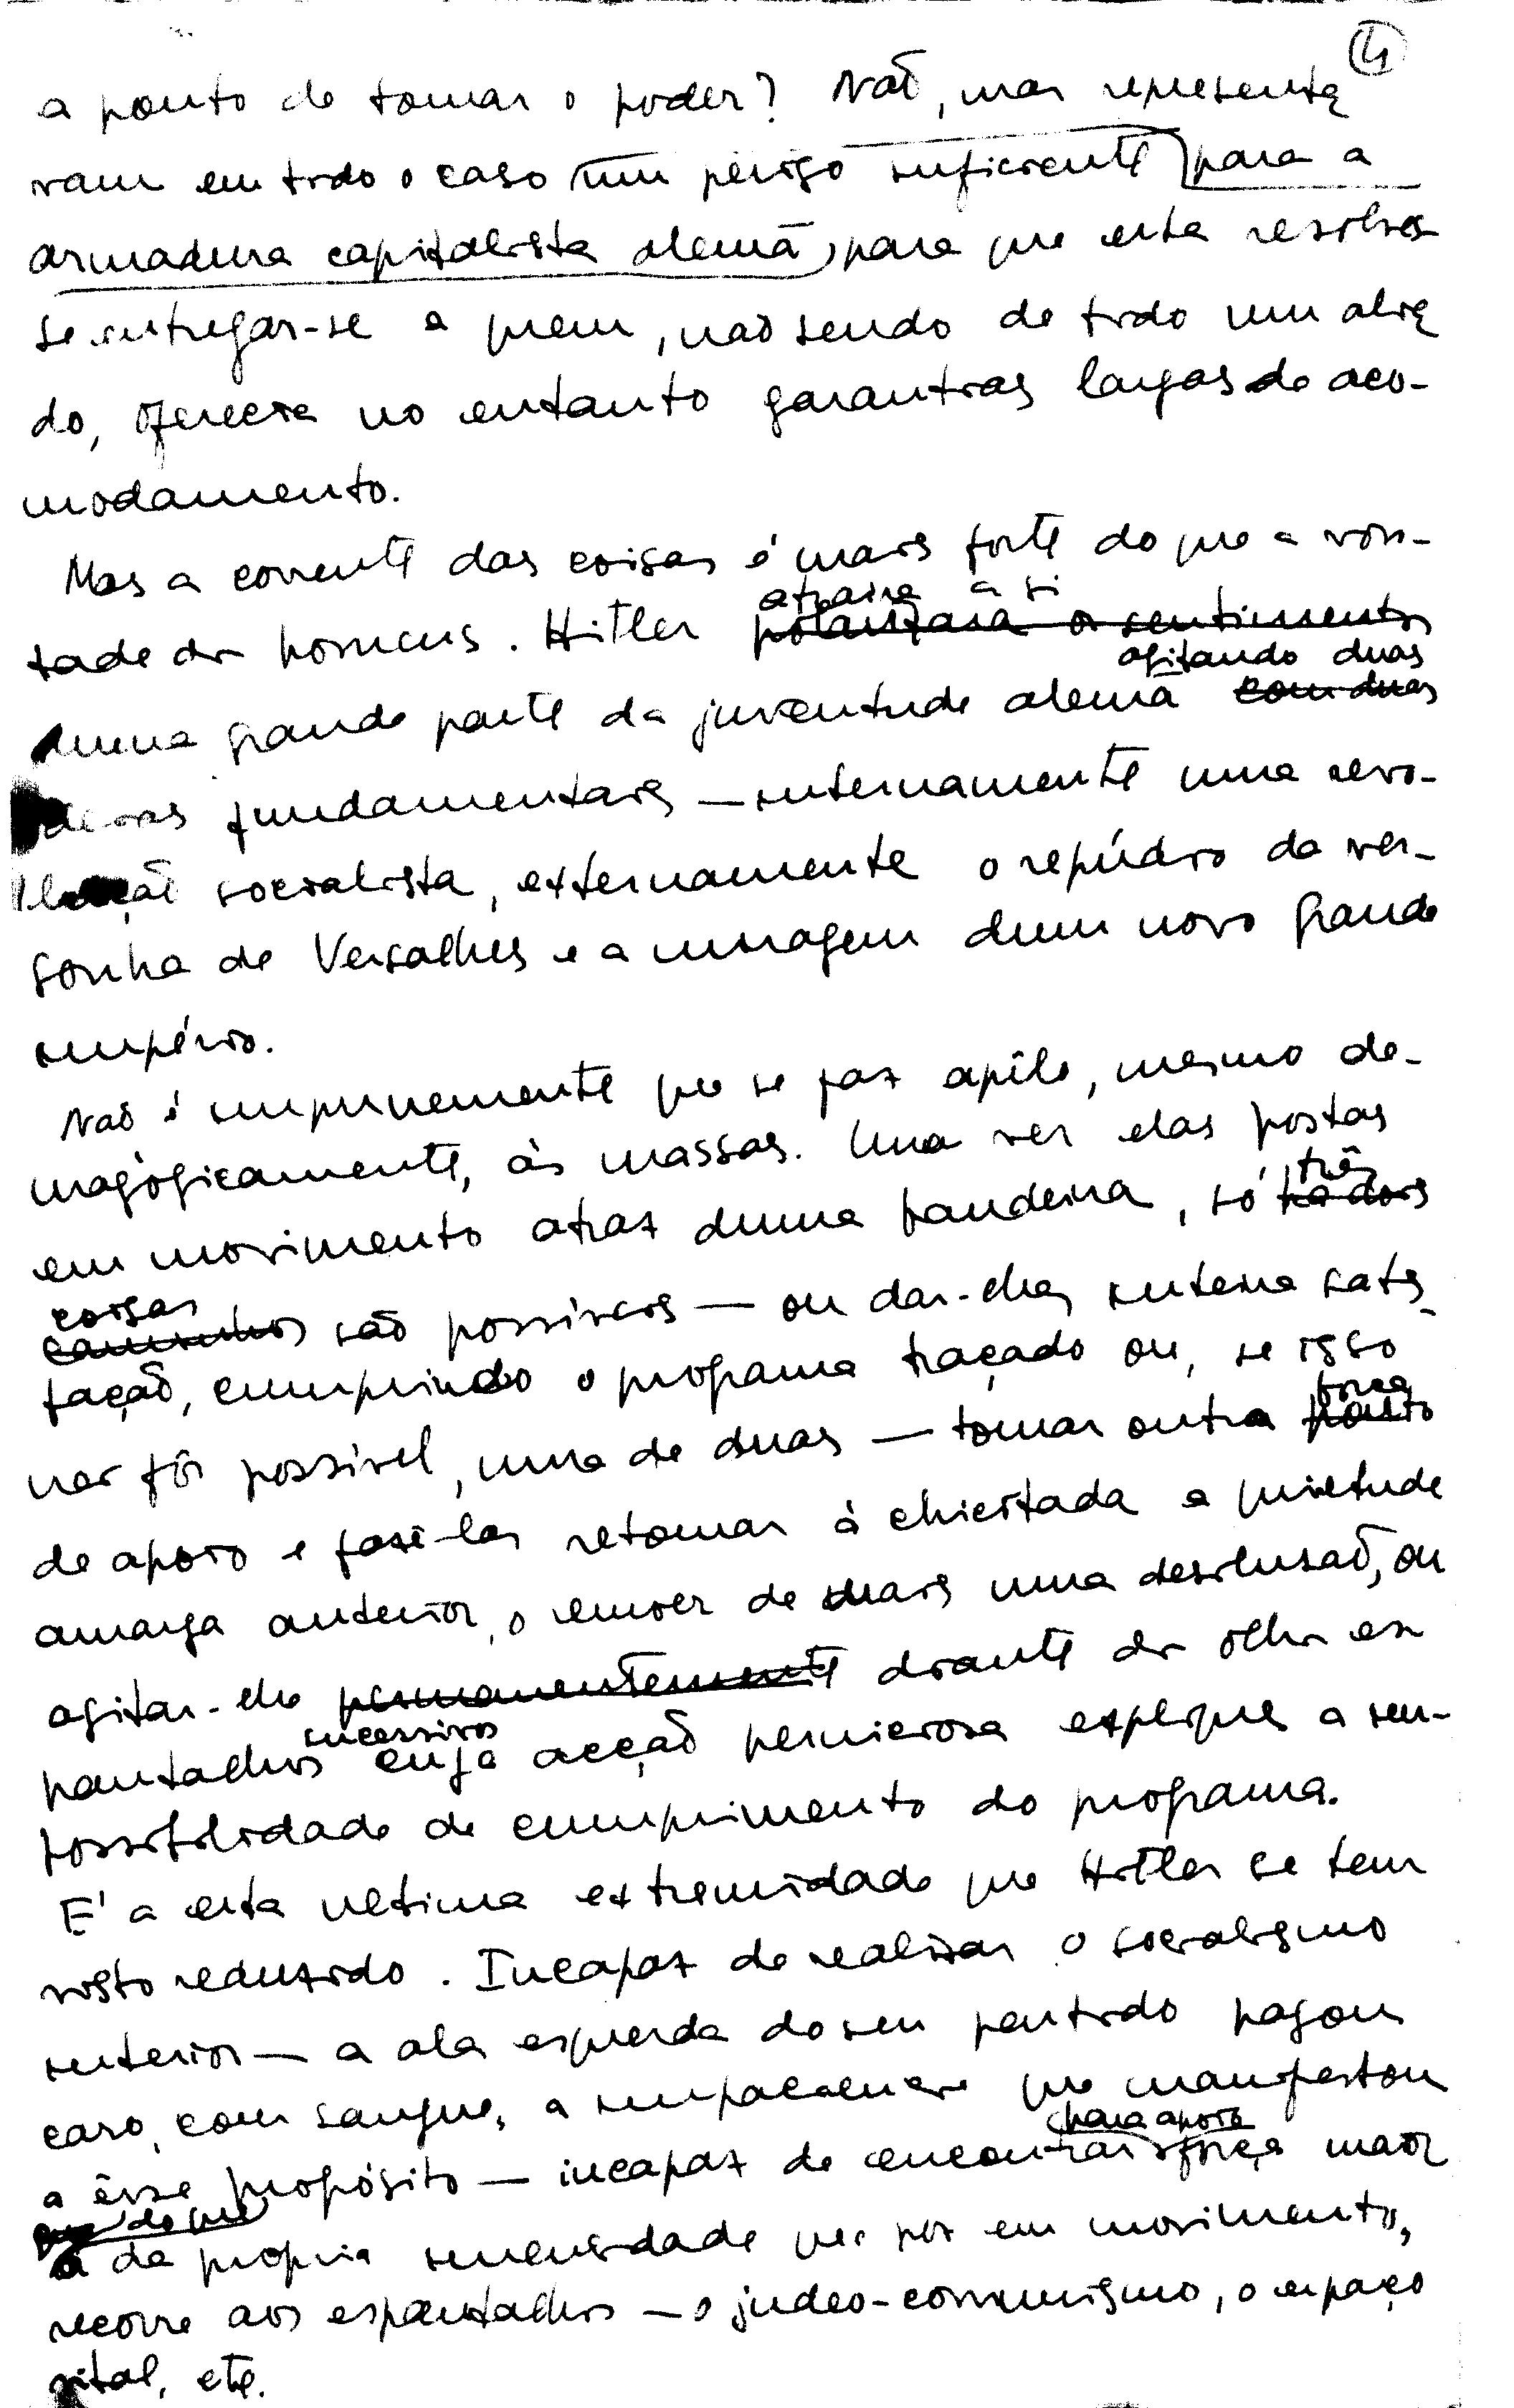 4
a ponto de tomar o poder? Não, mas representa
vam em todo o caso um perigo suficiente para a
armadura capitalista alemã, para que esta resolves
se entregar-se a quem, não sendo de todo um alia
do, oferecia no entanto garantias largas de aco-
modamento.
Mas a corrente das coisas é mais forte do que a von-
atraira a si
tade dos homens. Hitler polarizara os sentimentos
agitando duas
duma grande parte da juventude alemã com duas
ideias fundamentais — internamente uma revo-
lução socialista, externamente o repúdio da ver-
gonha de Versalhes e a miragem dum novo grande
império.
Não é impunemente que se faz apêlo, mesmo de-
magògicamente, às massas. Uma vez elas postas
três
em movimento atraz duma bandeira, só há dois
coisas
caminhos são possiveis — ou dar-lhes inteira satis
fação, cumprindo o programa traçado ou, se isso
força
não fôr possivel, uma de duas — tomar outra ponto
de apoio e fazê-las retomar à chicotada a quietude
amarga anterior, o remoer de mais uma desilusão, ou
agitar-lhe permanentemente diante dos olhos es
sucessivos
pantalhos cuja acção perniciosa explique a im-
possibilidade de cumprimento do programa.
E' a esta ultima extremidade que Hitler se tem
visto reduzido. Incapaz de realizar o socialismo
interior — a ala esquerda do seu partido pagou
caro, com sangue, a impaciencia que manifestou
para apoio
a êsse propósito — incapaz de encontrar força maior
do que
a da propria imensidade que pôs em movimento,
recorre aos espantalhos — o judeo-comunismo, o espaço
vital, etc.